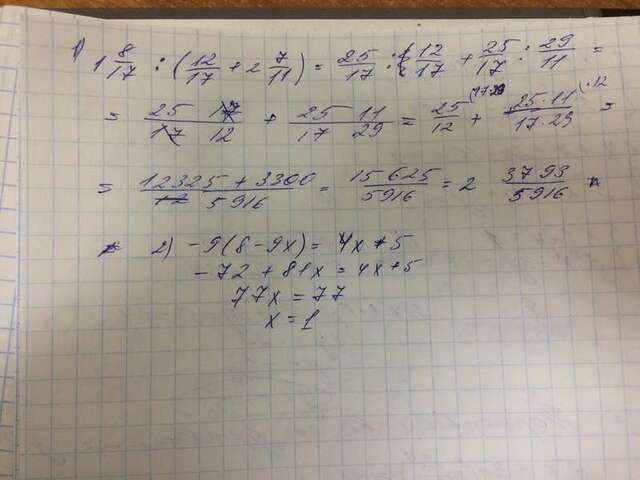 1) 1 8/17 : (12/17 + 2 7/11) = 25/17 : 12/17 + 25/17 : 29/11 =
= 25 17/17 12 + 25 11/17 29 = 25/12 (17·29 + 25·11/17·29 (·12 =
= 12325 + 3300/5916 = 15625/5916 = 2 3793/5916
2) -9(8-9x) = 4x+5
-72 + 81x = 4x+5
77x = 77
x = 1